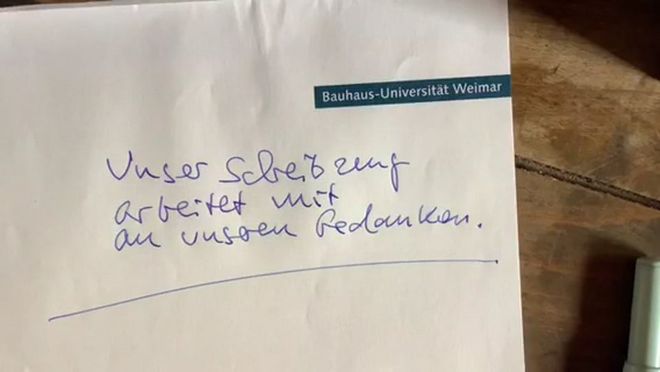 Bauhaus-Universität Weimar
Unser Scheibzeug
arbeitet mit
an unseren Gedanken.